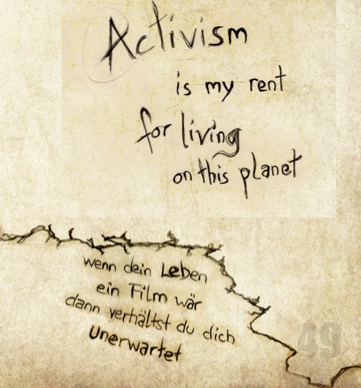 Activism
is my rent
for living
on this planet
wenn dein Leben
ein Film wär
dann verhältst du dich
unerwartet
49